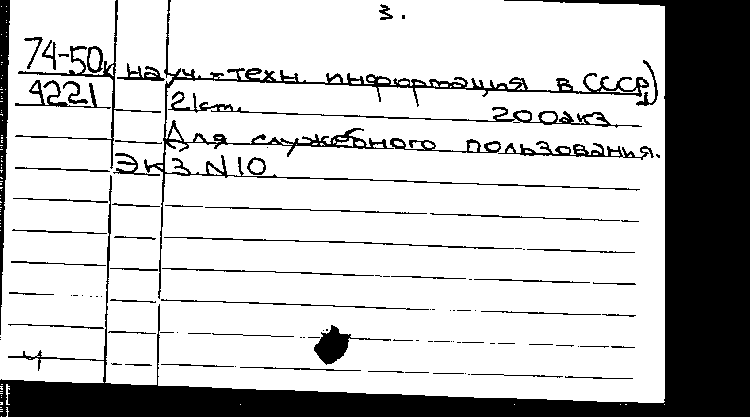 3.
74-50к науч.-техн. информация в СССР)
4221 21ст. 200экз.
Для служебного пользования.
Экз. N10.
ч